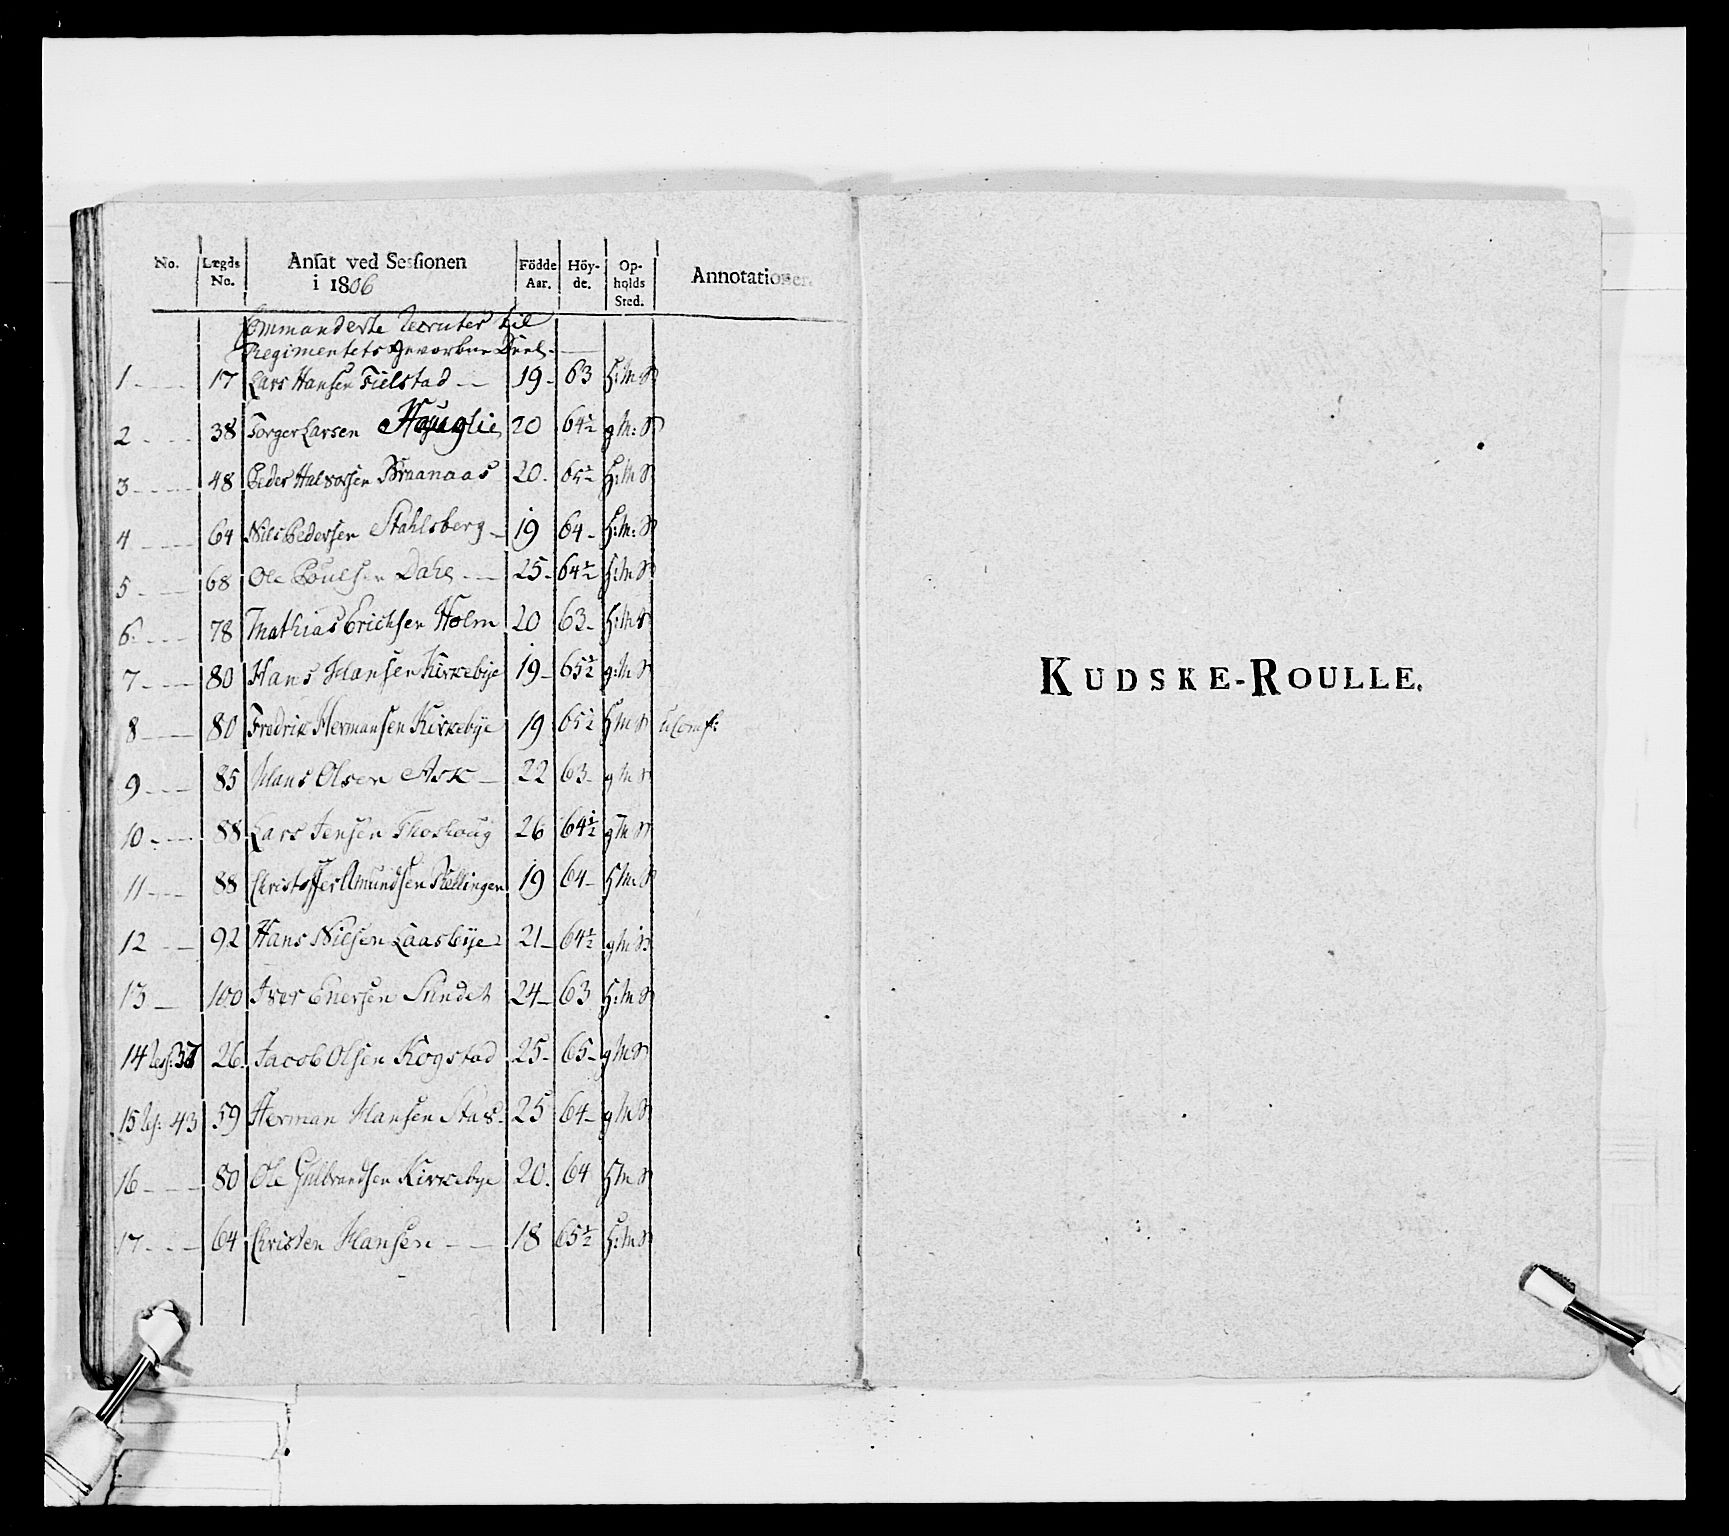 No. Lægds No. Ansat ved Sessionen i 1806 Födde Aar. Höy-de. Op-holds Sted. Annotationer.
Commanderte Recruter til
Regimentets Gevorbne Deel.
1 17 Lars Hansen Fielstad 19 63 h: M S
2 38 Torger Larsen Hauglie 20 64½ g M: S
3 48 Peder Halvorsen Braanaas 20. 65½ h: M S
4 64 Nils Pedersen Stahlsberg 19 64 h: M: S
5 68 Ole Poulsen Dahl 25 64½ h: M S
6 78 Mathias Erichsen Holm 20 63 h: M S
7 80 Hans Hansen Kirkebye 19 65½ g: M S
8 80 Fredrik Hermansen Kirkebye 19 65½ h M S
9 85 Hans Olsen Ask 22 63 g M S
10 88 Lars Jensen Thoshoug 26 64½ g M S
11 88 Christoffer Amundsen Rellingen 19 64 h M S
12 92 Hans Nilsen Laasbye 21 64½ g M S
13 100 Iver Enersen Sundet 24 63 h: M S
14 Res: 37 26. Jacob Olsen Kogstad 25 65 g M S
15 Res: 43 59 Herman Hansen 25 64 g M S
16 80 Ole Gulbrandsen Kirkebye 20. 64 h M S
17 64 Christen Hansen 18 65½ h: M S
KUDSKE-ROULLE.